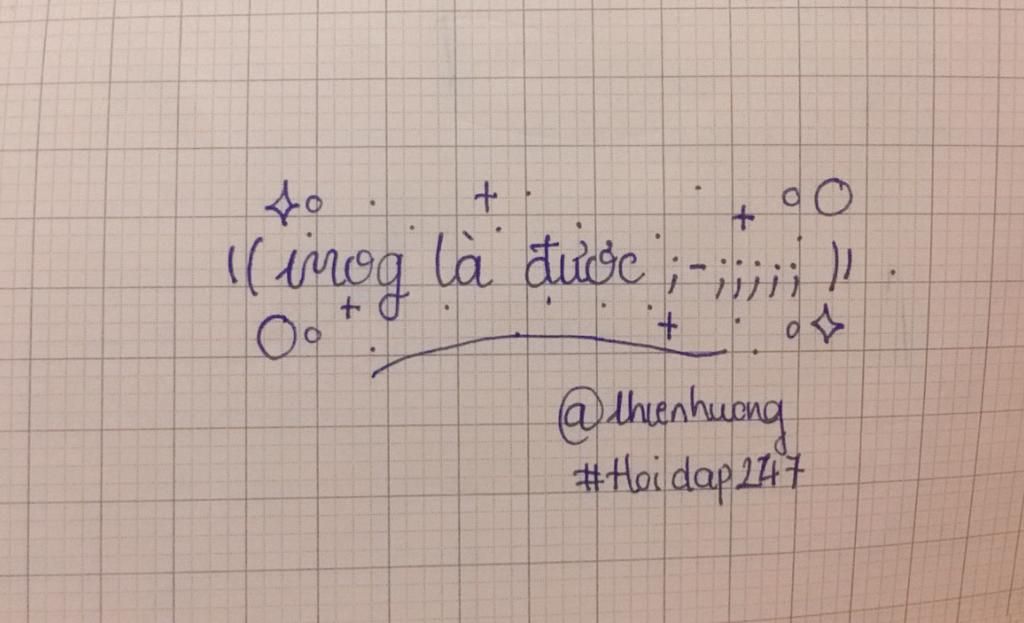 ((imog là được ;-;;;;; ))
@thienhuong
#Hoidap247